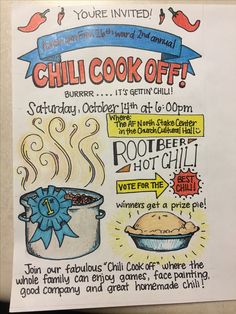 YOU'RE INVITED!
16th ward 2nd annual
CHILI COOK OFF!
BURRRR.... IT'S GETTIN' CHILI!
Saturday, October 14th at 6:00pm
Where:
The AF North Stake Center
in the Church Cultural Hall
ROOTBEER
HOT CHILI
VOTE FOR THE
BEST
CHILI!
winners get a prize pie!
Join our fabulous "Chili Cook off" where the
whole family can enjoy games, face painting,
good company and great homemade chili!